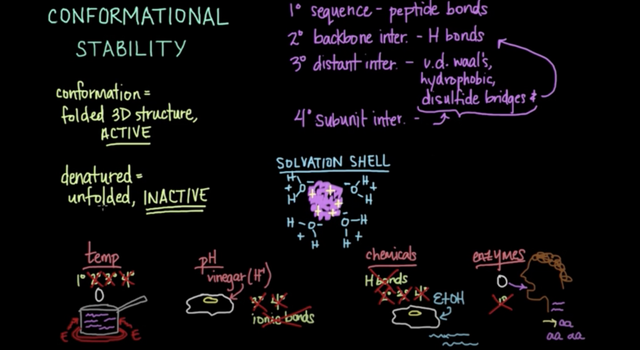 CONFORMATIONAL
STABILITY
conformation =
folded 3D structure,
ACTIVE
denatured =
unfolded, INACTIVE
1° sequence - peptide bonds
2° backbone inter. - H bonds
3° distant inter. - v.d. waal's,
hydrophobic,
disulfide bridges &
4° subunit inter. -
SOLVATION SHELL
H H
+ - - +
O O
H H
H-O O-H
+ - - +
H H
temp
1° 2° 3° 4°
E E
pH
vinegar (H+)
3° 4°
ionic bonds
chemicals
H bonds
2° 3° 4°
EtOH
enzymes
1°
→ aa
aa aa